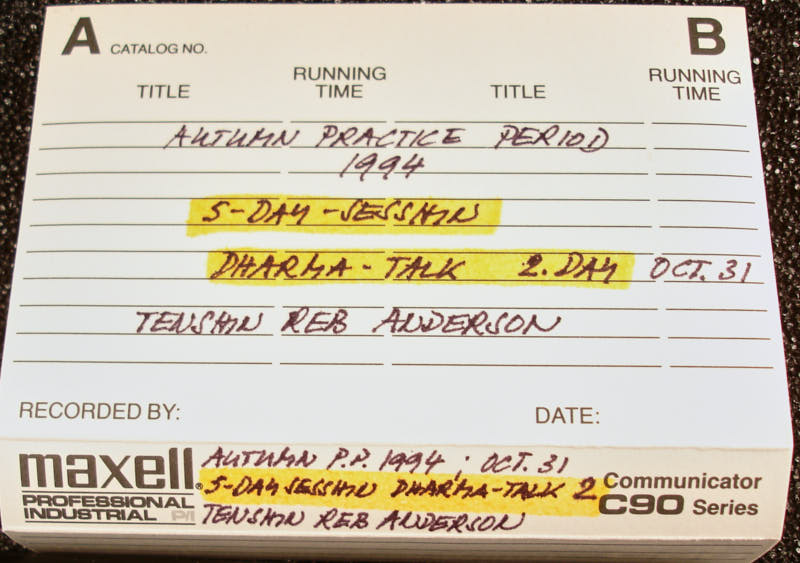 A CATALOG NO. B
TITLE RUNNING TIME TITLE RUNNING TIME
AUTUMN PRACTICE PERIOD
1994
5-DAY-SESSHIN
DHARMA-TALK 2. DAY OCT. 31
TENSHIN REB ANDERSON
RECORDED BY: DATE:
maxell® AUTUMN P.P. 1994; OCT. 31
5-DAY SESSHIN DHARMA-TALK 2 Communicator
PROFESSIONAL INDUSTRIAL P/I C90 Series
TENSHIN REB ANDERSON